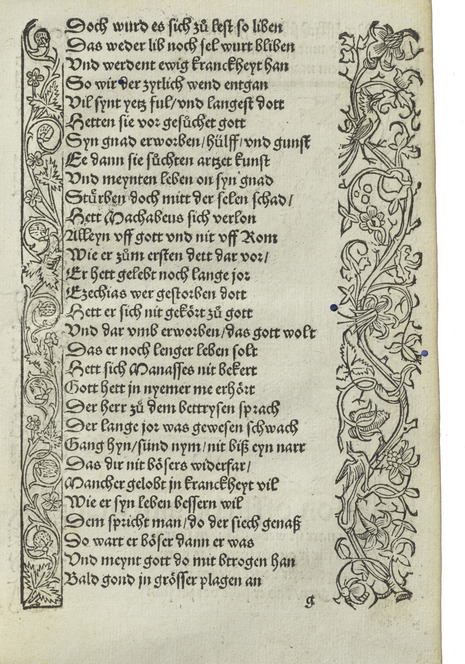 Doch wurd es sich zů lest so liben
Das weder lib noch sel wurt bliben
Vnd werdent ewig kranckheyt han
So wir der zytlich wend entgan
Vil synt yetz ful/vnd langest dott
Hetten sie vor gesůchet gott
Syn gnad erworben/hülff/vnd gunst
Ee dann sie sůchten artzet kunst
Vnd meynten leben on syn gnad
Stürben doch mitt der selen schad/
Hett Machabeus sich verlon
Alleyn vff gott vnd nit vff Rom
Wie er züm ersten dett dar vor/
Er hett gelebt noch lange jor
Ezechias wer gestorben dott
Hett er sich nit gekört zů gott
Vnd dar vmb erworben/das gott wolt
Das er noch lenger leben solt
Hett sich Manasses nit bekert
Gott hett jn nyemer me erhört
Der herr zů dem bettrysen sprach
Der lange jor was gewesen schwach
Gang hyn/sünd nym/nit biß eyn narr
Das dir nit bösers widerfar/
Mancher gelobt jn kranckheyt vil
Wie er syn leben bessern wil
Dem spricht man/do der siech genaß
Do wart er böser dann er was
Vnd meynt gott do mit btrogen han
Bald gond jn grösser plagen an
g